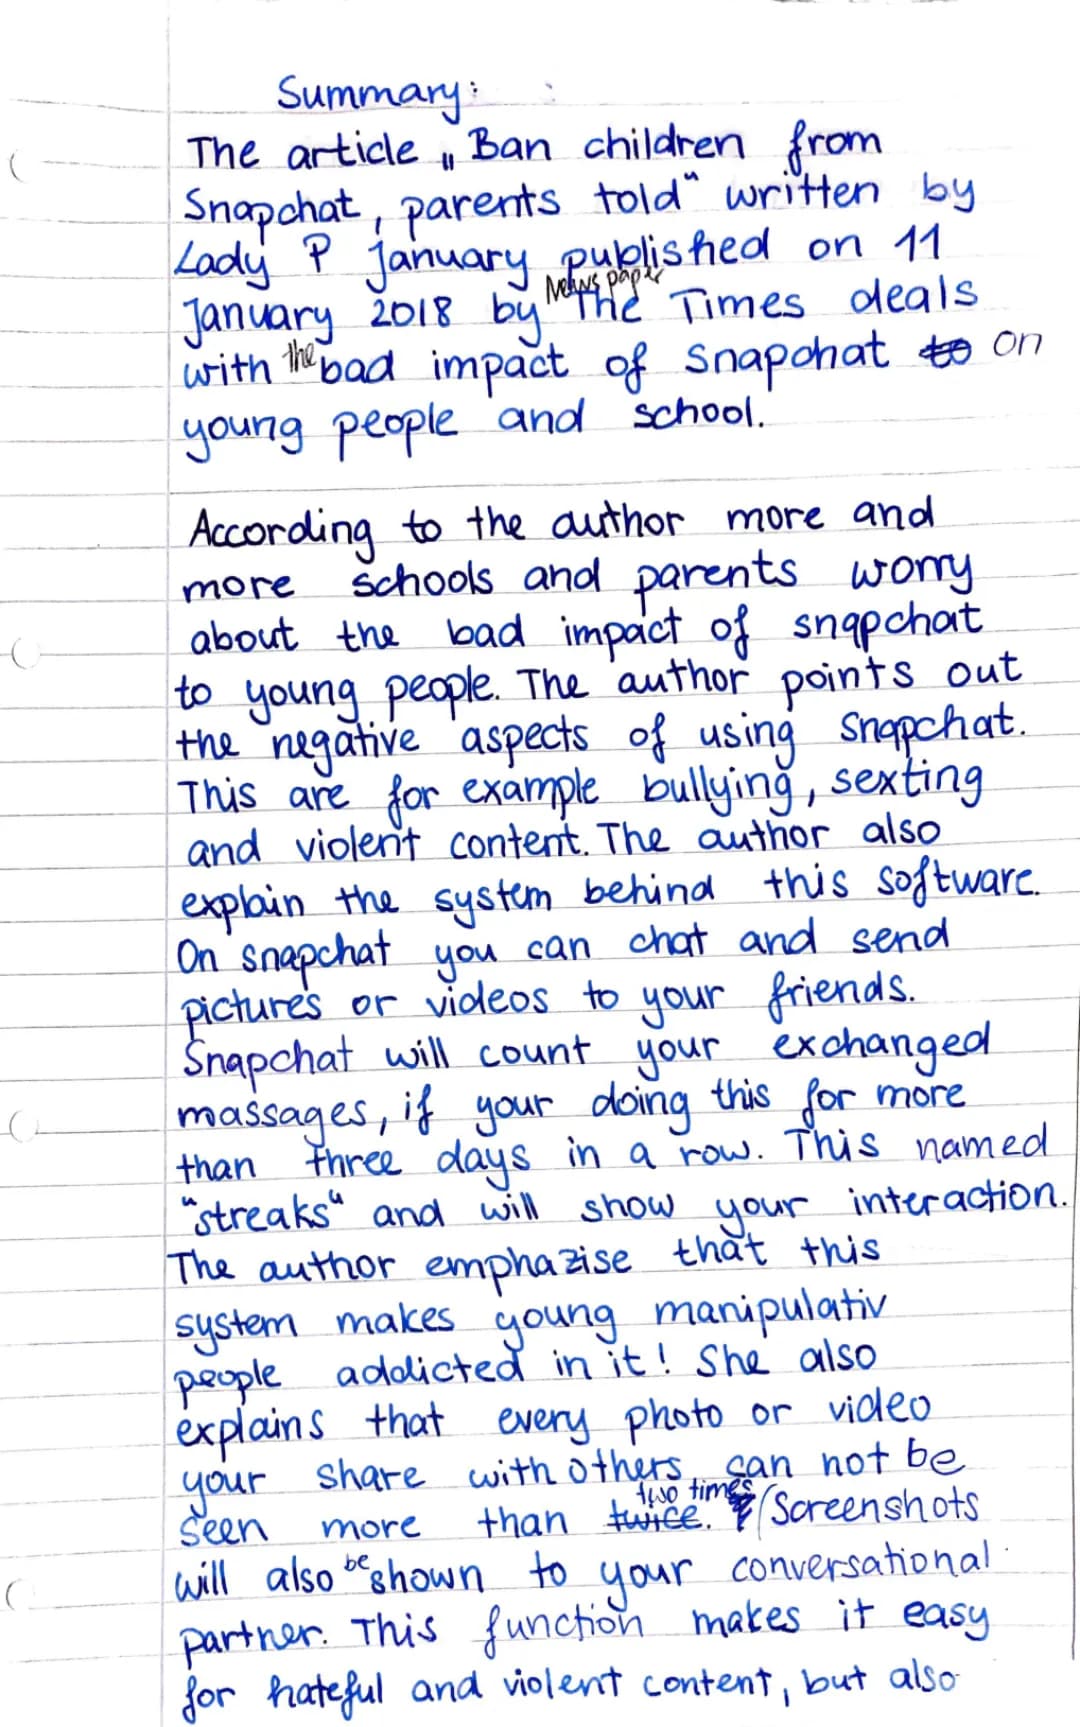 Summary:
The article „Ban children from
Snapchat, parents told“ written by
Lady P january published on 11
January 2018 by Newspaper The Times deals
with the bad impact of snapchat to on
young people and school.
According to the author more and
more schools and parents worry
about the bad impact of snapchat
to young people. The author points out
the negative aspects of using Snapchat.
This are for example bullying, sexting
and violent content. The author also
explain the system behind this software.
On snapchat you can chat and send
pictures or videos to your friends.
Snapchat will count your exchanged
massages, if your doing this for more
than three days in a row. This named
“streaks“ and will show your interaction.
The author emphazise that this
system makes young manipulativ
people addicted in it! She also
explains that every photo or video
your share with others can not be
seen more than twice. two times (Screenshots
will also be shown to your conversational
partner. This function makes it easy
for hateful and violent content, but also